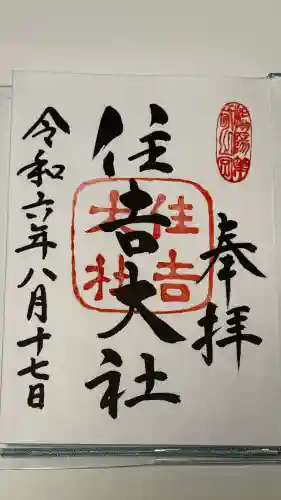 奉拝
住吉大社
住吉
大社
令和六年八月十七日